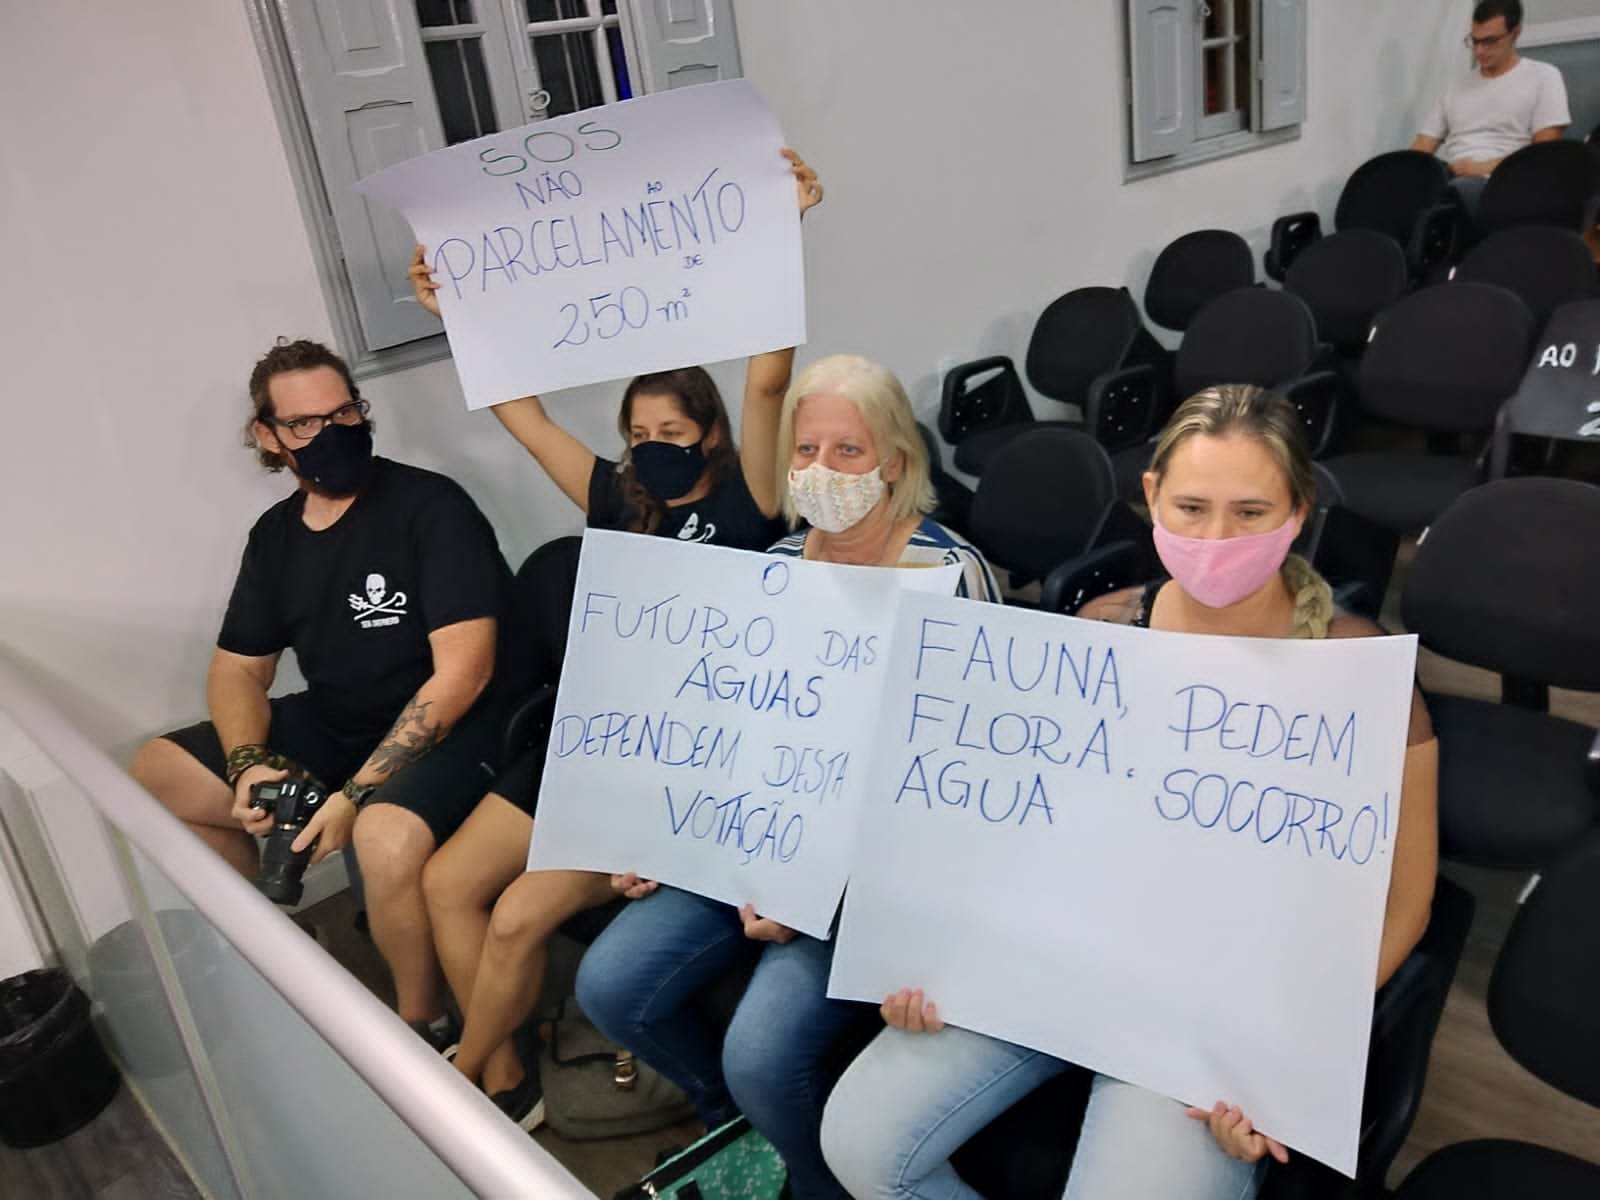 SOS
NÃO
AO
PARCELAMENTO
DE
250 m²
SEA SHEPHERD
O
FUTURO DAS
ÁGUAS
DEPENDEM DESTA
VOTAÇÃO
FAUNA,
FLORA.
ÁGUA
PEDEM
SOCORRO!
AO